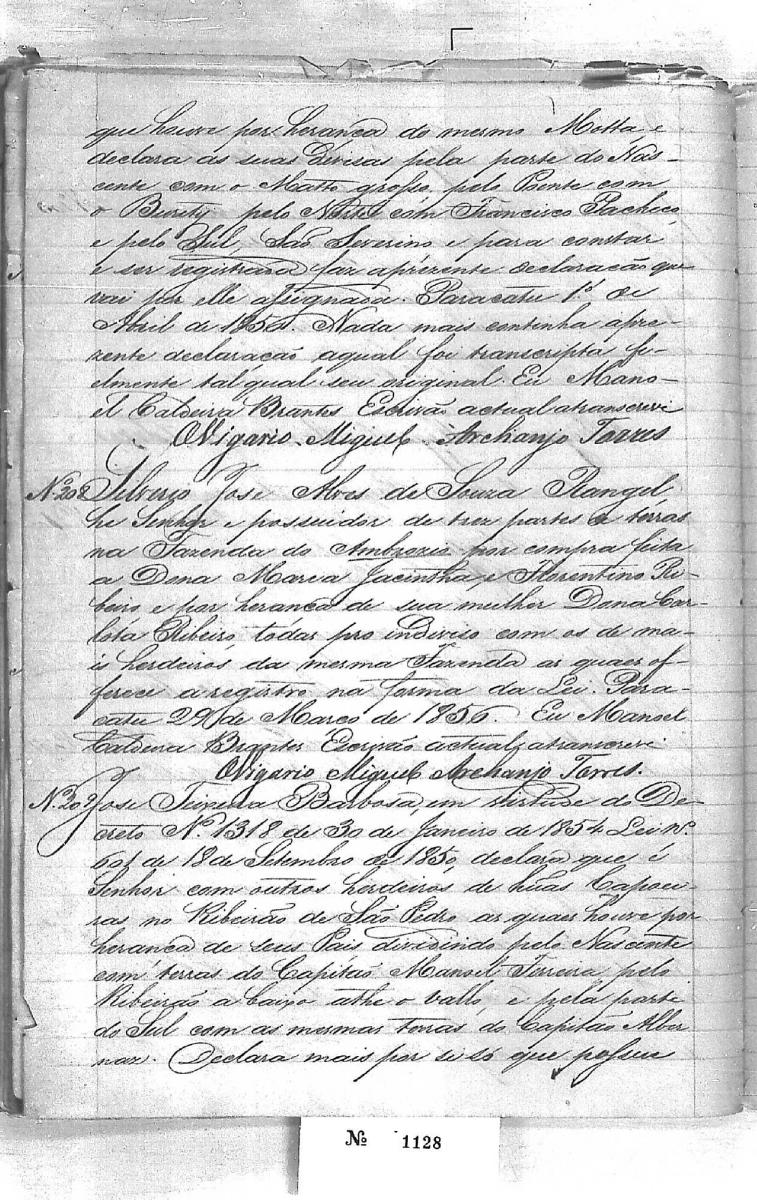 que houve por herança do mesmo Motta e
declara as suas divisas pela parte do Nas-
cente com o Matto grosso, pelo Poente com
o Burity pelo Norte com Francisco Pacheco
e pelo Sul, São Severino e para constar
e ser registrada faz aprezente declaração que
vai por elle assignada. Paracatu 1º de
Abril de 1856. Nada mais continha apre-
zente declaração aqual foi transcripta fi-
elmente tal qual seu original. Eu Mano-
el Caldeira Brantes Escrivão actual atranscrevi
O Vigario Miguel Archanjo Torres
Nº 208 Silverio Jose Alves de Souza Rangel
he Senhor e possuidor de trez partes de terras
na Fazenda do Ambrozio por compra feita
a Dona Maria Jacintha, e Florentino Ri-
beiro e por herança de sua mulher Dona Car-
lota Ribeiro, todas pro indivizo com os de ma-
is herdeiros da mesma Fazenda as quaes of-
ferece a registro na forma da Lei. Para-
catu 29 de Março de 1856. Eu Manoel
Caldeira Brantes Escrivão actual, atranscrevi
O Vigario Miguel Archanjo Torres.
Nº 209 Jose Teixeira Barbosa, em virtude do De-
creto Nº 1318 de 30 de Janeiro de 1854 Lei nº
601 de 18 de Setembro de 1850, declara que é
Senhor com outros herdeiros de huas Capoei-
ras no Ribeirão de São Pedro as quaes houve por
herança de seus Pais dividindo pelo Nascente
com terras do Capitão Manoel Ferreira pelo
Ribeirão a baixo athe o vallo, e pela parte
do Sul com as mesmas terras do Capitão Alber
naz. Declara mais por se só que possue
Nº 1128